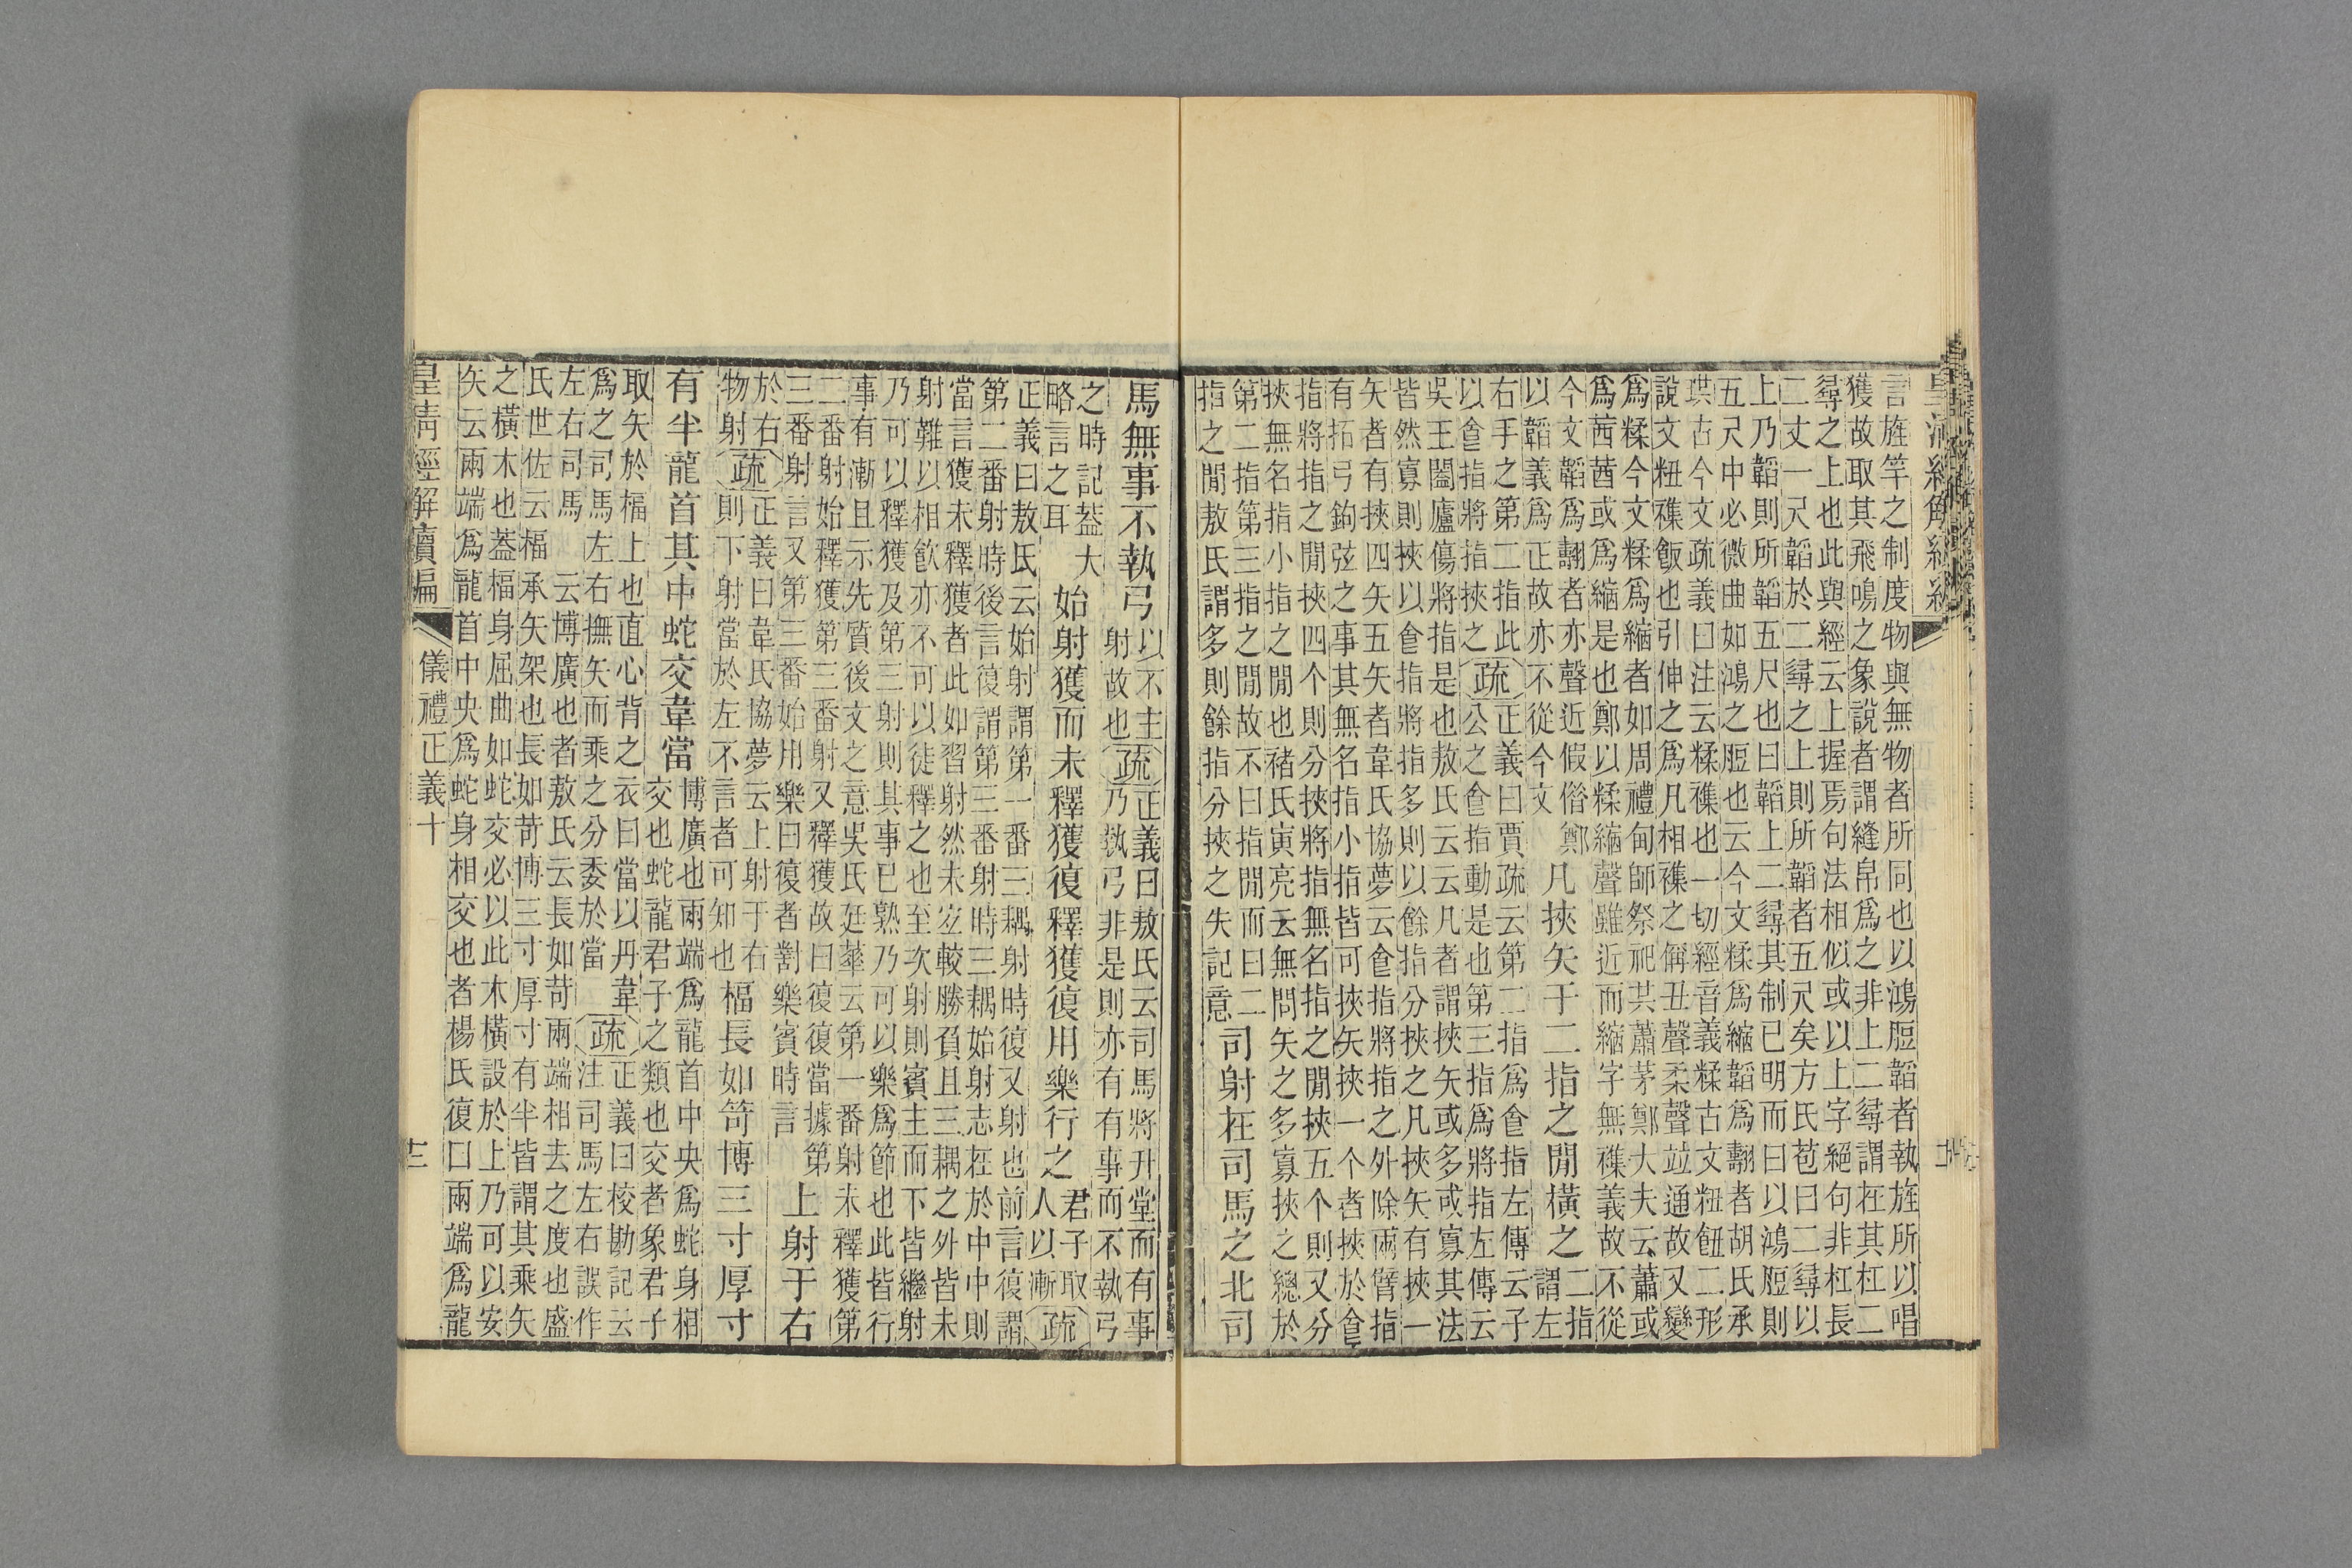 言旌竿之制度物與無物者所同也以鴻脰韜者執旌所以唱
獲故取其飛鳴之象說者謂縫帛爲之非上二尋謂在其杠二
尋之上也此與經云上握焉句法相似或以上字絕句非杠長
二丈一尺韜於二尋之上則所韜者五尺矣方氏苞曰二尋以
上乃韜則所韜五尺也曰韜上二尋其制已明而曰以鴻脰則
五尺中必微曲如鴻之脰也云今文糅爲縮韜爲翿者胡氏承
珙古今文疏義曰注云糅襍也一切經音義糅古文粈䬔二形
說文粈襍飯也引伸之爲凡相襍之偁丑聲柔聲竝通故又變
爲糅今文糅爲縮者如周禮甸師祭祀共蕭茅鄭大夫云蕭或
爲茜茜或爲縮是也鄭以糅縮聲雖近而縮字無襍義故不從
今文韜爲翿者亦聲近假俗鄭
以韜義爲正故亦不從今文
凡挾矢于二指之閒橫之
二指
謂左
右手之第二指此
以食指將指挾之
疏
正義曰賈疏云第二指爲食指左傳云子
公之食指動是也第三指爲將指左傳云
吳王闔廬傷將指是也敖氏云云凡者謂挾矢或多或寡其法
皆然寡則挾以食指將指多則以餘指分挾之凡挾矢有挾一
矢者有挾四矢五矢者韋氏協夢云食指將指之外除兩臂指
有拓弓鉤弦之事其無名指小指皆可挾矢挾一个者挾於食
指將指之閒挾四个則分挾將指無名指之閒挾五个則又分
挾無名指小指之閒也褚氏寅亮云無問矢之多寡挾之總於
第二指第三指之閒故不曰指閒而曰二
指之閒敖氏謂多則餘指分挾之失記意
司射在司馬之北司
馬無事不執弓
以不主
射故也
疏
正義曰敖氏云司馬將升堂而有事
乃執弓非是則亦有有事而不執弓
之時記葢大
略言之耳
始射獲而未釋獲復釋獲復用樂行之
君子取
人以漸
疏
正義曰敖氏云始射謂第一番三耦射時復又射也前言復謂
第二番射時後言復謂第三番射時三耦始射志在於中中則
當言獲未釋獲者此如習射然未定較勝負且三耦之外皆未
射難以相飮亦不可以徒釋之也至次射則賓主而下皆繼射
乃可以釋獲及第三射則其事已熟乃可以樂爲節也此皆行
事有漸且示先質後文之意吳氏廷華云第一番射未釋獲第
二番射始釋獲第三番射又釋獲故曰復復當據第
三番射言又第三番始用樂曰復者對樂賓時言
上射于右
於右
物射
疏
正義曰韋氏協夢云上射于右
則下射當於左不言者可知也
楅長如笴博三寸厚寸
有半龍首其中蛇交韋當
博廣也兩端爲龍首中央爲蛇身相
交也蛇龍君子之類也交者象君子
取矢於楅上也直心背之衣曰當以丹韋
爲之司馬左右撫矢而乘之分委於當
疏
正義曰校勘記云
注司馬左右誤作
左右司馬 云博廣也者敖氏云長如笴兩端相去之度也盛
氏世佐云楅承矢架也長如笴博三寸厚寸有半皆謂其乘矢
之橫木也葢楅身屈曲如蛇交必以此木橫設於上乃可以安
矢云兩端爲龍首中央爲蛇身相交也者楊氏復曰兩端爲龍
皇淸經解續編
儀禮正義十